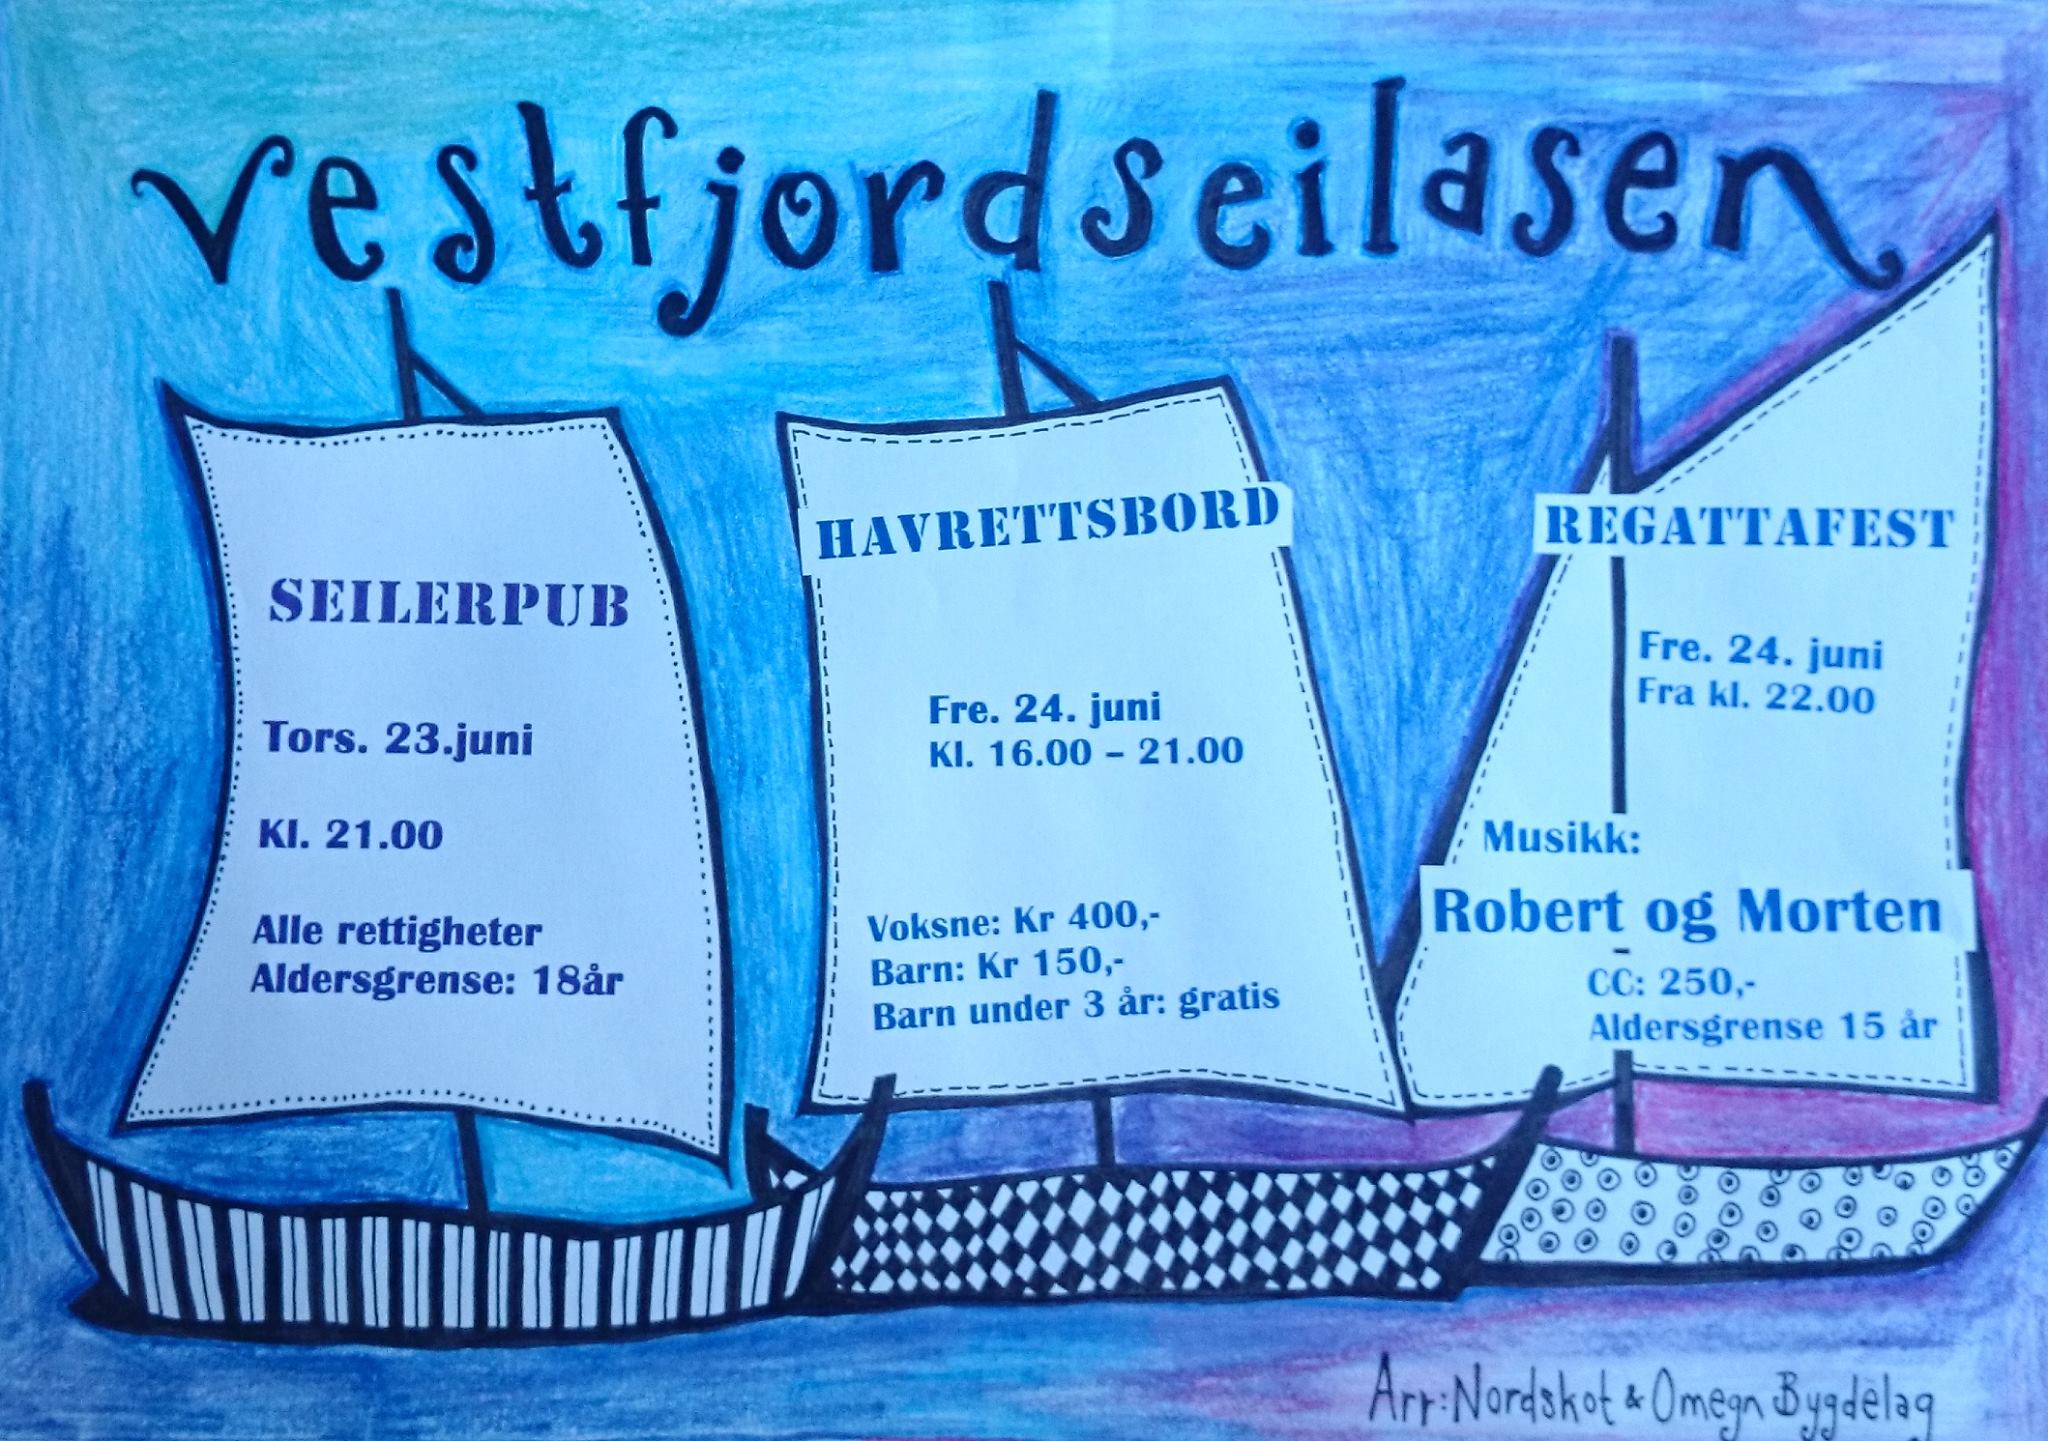 vestfjordseilasen
SEILERPUB
Tors. 23.juni
Kl. 21.00
Alle rettigheter
Aldersgrense: 18år
HAVRETTSBORD
Fre. 24. juni
Kl. 16.00 – 21.00
Voksne: Kr 400,-
Barn: Kr 150,-
Barn under 3 år: gratis
REGATTAFEST
Fre. 24. juni
Fra kl. 22.00
Musikk:
Robert og Morten
CC: 250,-
Aldersgrense 15 år
Arr: Nordskot & Omegn Bygdelag